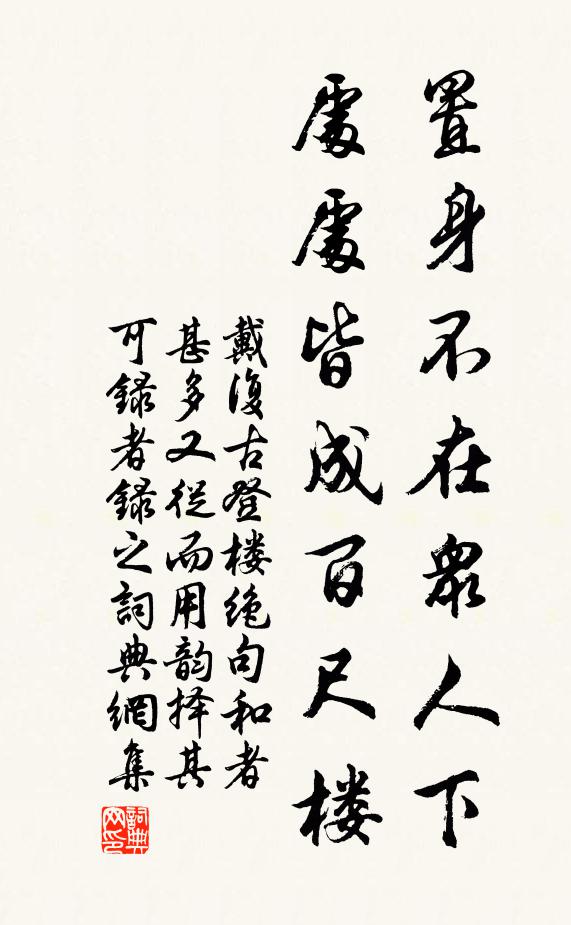 置身不在衆人下
處處皆成百尺楼
戴復古登楼绝句和者
甚多又從而用韵择其
可録者録之詞典網集
詞典
网印